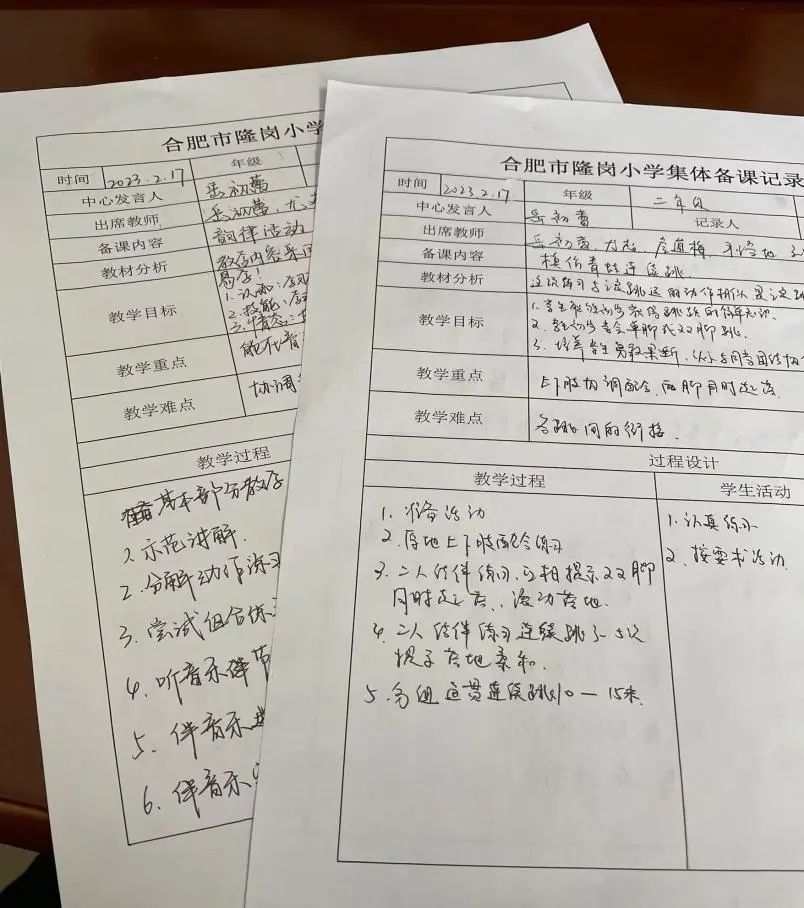 合肥市隆岗小学
时间 2023.2.17 年级
中心发言人 岳初蕾
出席教师 岳初蕾、尤
备课内容 韵律活动
教材分析 教学内容采
易学!
教学目标 1. 认知:
2. 技能:
3. 情感:
教学重点 能在音
教学难点 协调
教学过程
基本部分教学
1. 示范讲解.
2. 分解动作练习
3. 尝试组合练
4. 听音乐
5. 伴音乐
6. 伴音乐
合肥市隆岗小学集体备课记录
时间 2023.2.17 年级 二年级
中心发言人 岳初蕾 记录人
出席教师 岳初蕾、
备课内容 模仿青蛙连续跳
教材分析 这次练习与立定跳远的动作相似,是立定跳
教学目标 1. 学生能初步
2. 学生初步学会单脚或双脚跳.
3. 培养学生勇敢果断、
教学重点 上下肢协调配合,两脚同时起落
教学难点 各跳间的衔接.
过程设计
教学过程 学生活动
1. 准备活动
2. 原地上下肢配合练习
3. 二人结伴练习,互相提示双脚
同时起去、滚动落地.
4. 二人结伴练习连续跳3-5次
提示落地柔和.
5. 分组连贯连续跳10—15米.
1. 认真练习
2. 按要求活动